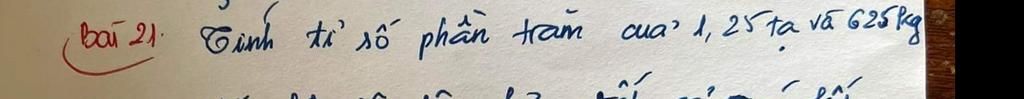 Bài 21. Tính tỉ số phần trăm của 1,25 tạ và 625kg